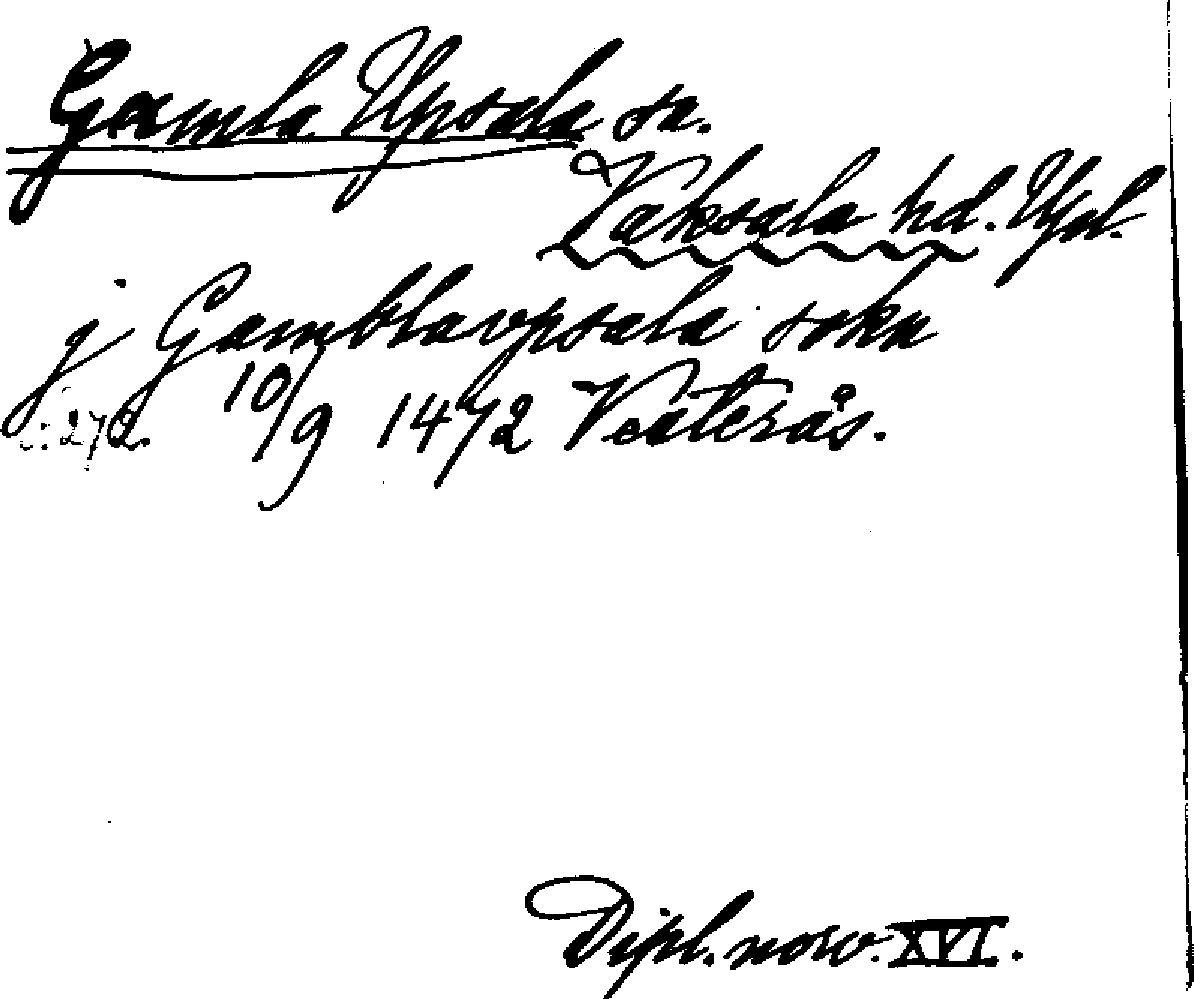 Gamla Upsala sn.
Vaksala hd. Upl.
j Gamblavpsala sokn
s: 272. 10/9 1472 Västerås.
Dipl. norv. XVI.